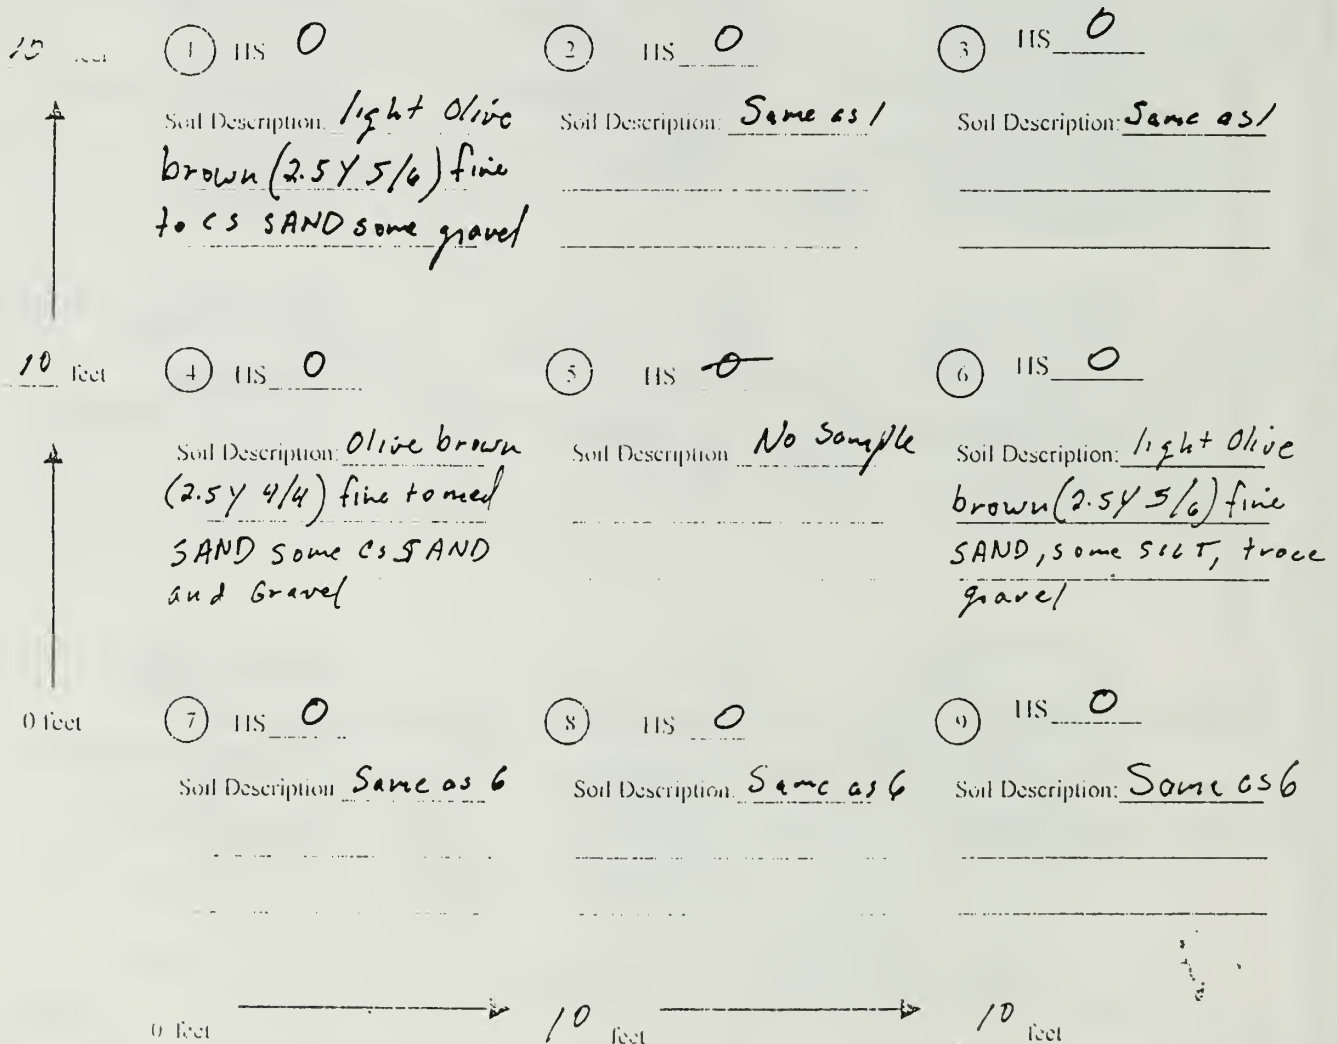 10 feet
1 HS 0
Soil Description: light Olive
brown (2.5Y 5/6) fine
to cs SAND some gravel
2 HS 0
Soil Description: Same as 1
3 HS 0
Soil Description: Same as 1
10 feet
4 HS 0
Soil Description: Olive brown
(2.5Y 4/4) fine to med
SAND some cs SAND
and Gravel
5 HS 0
Soil Description No Sample
6 HS 0
Soil Description: light Olive
brown (2.5Y 5/6) fine
SAND, some SILT, trace
gravel
0 feet
7 HS 0
Soil Description Same as 6
8 HS 0
Soil Description: Same as 6
9 HS 0
Soil Description: Same as 6
0 feet
10 feet
10 feet